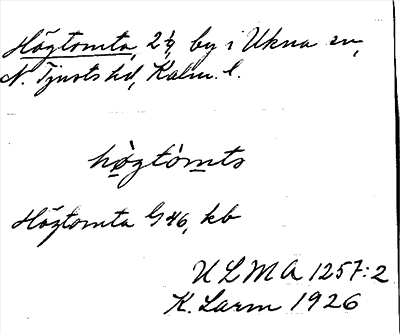 Högtomta, 2/4, by i Ukna sn,
N. Tjusts hd, Kalm. l.
hògtómts
Högtomta G 46, kb
ULMA 1257:2
K. Larm 1926